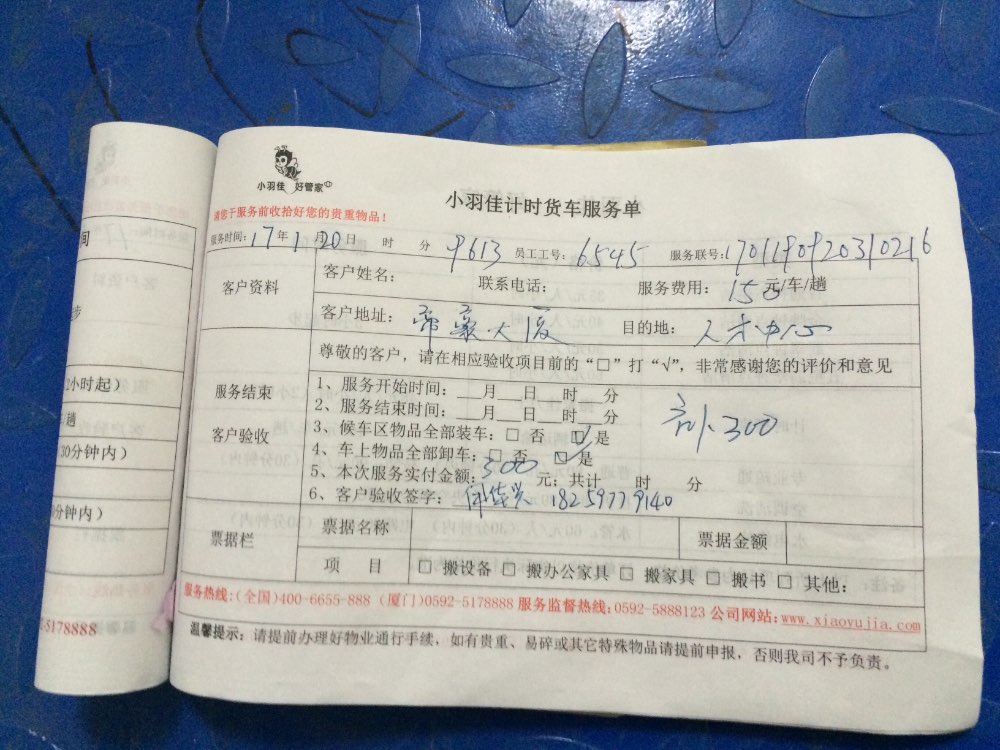 小羽佳 好管家
小羽佳计时货车服务单
请您于服务前收拾好您的贵重物品！
服务时间：17年1月20日 时 分 9613 员工工号：6545 服务联号：1701190920310216
客户资料
客户姓名： 联系电话： 服务费用：150元/车/趟
客户地址：帝豪大厦 目的地：人才中心
服务结束
客户验收
尊敬的客户，请在相应验收项目前的“□”打“√”，非常感谢您的评价和意见
1、服务开始时间：__月__日 时 分
2、服务结束时间：__月__日 时 分
300
3、候车区物品全部装车：□ 否 ☑ 是
4、车上物品全部卸车：□ 否 □ 是
5、本次服务实付金额：300元；共计 时 分
6、客户验收签字： 18259779140
票据栏
票据名称 票据金额
项 目 □ 搬设备 □ 搬办公家具 □ 搬家具 □ 搬书 □ 其他：
服务热线：(全国)400-6655-888 (厦门)0592-5178888 服务监督热线：0592-5888123 公司网站：www.xiaoyujia.com
温馨提示：请提前办理好物业通行手续，如有贵重、易碎或其它特殊物品请提前申报，否则我司不予负责。
间
步
2小时起）
趟
30分钟内）
分钟内）
-5178888